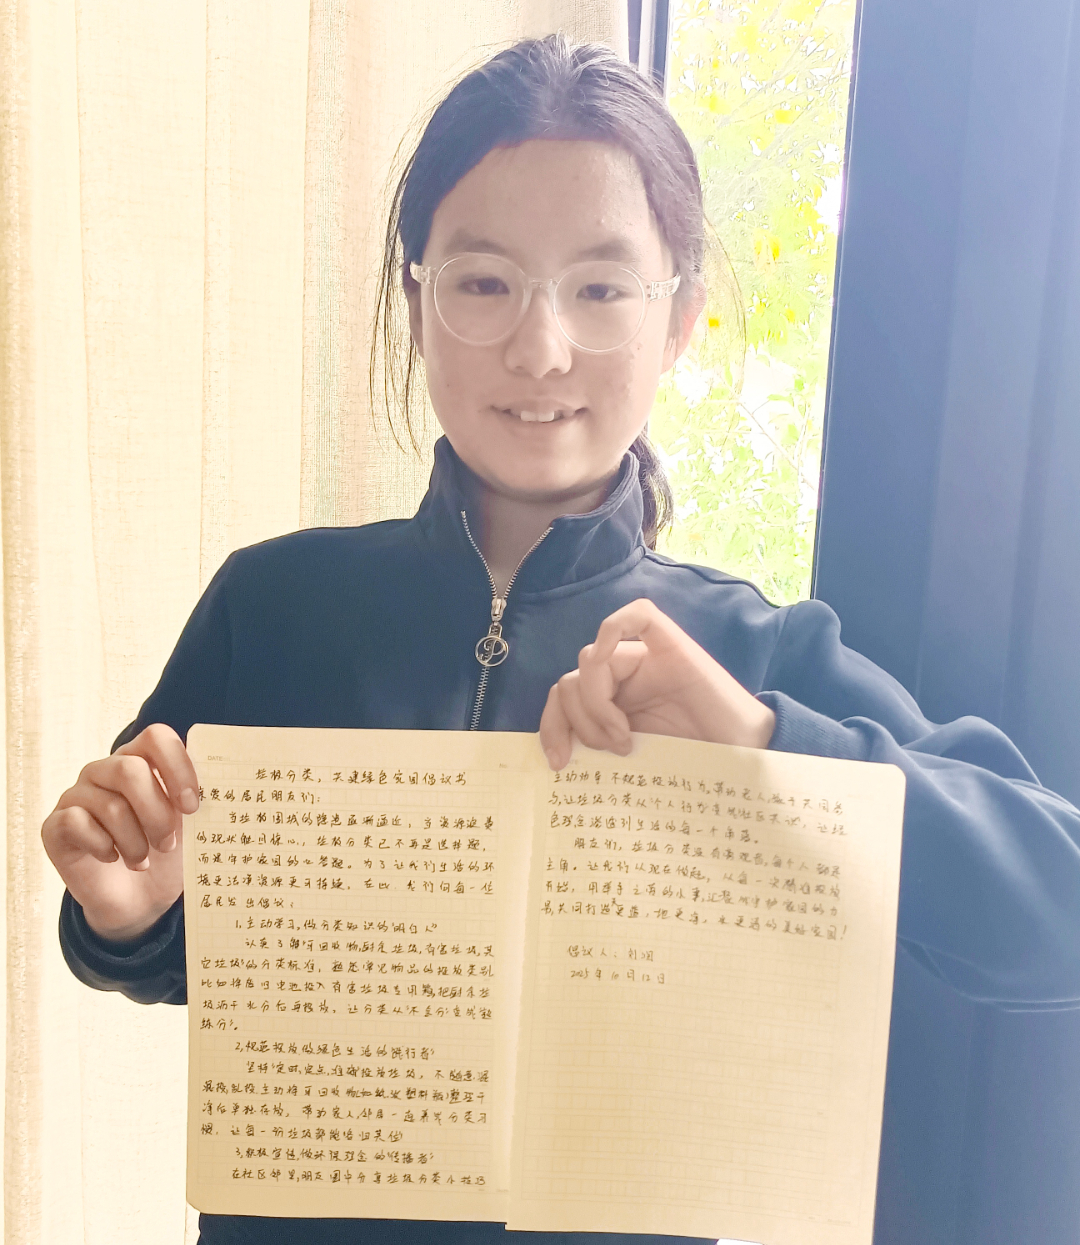 DATE
垃圾分类，共建绿色家园倡议书
亲爱的居民朋友们：
当垃圾围城的隐患逐渐逼近，当资源浪费
的现状触目惊心，垃圾分类已不再是选择题，
而是守护家园的必答题。为了让我们生活的环
境更洁净资源更可持续，在此，我们向每一位
居民发出倡议：
1.主动学习,做分类知识的“明白人”
认真了解可回收物,厨余垃圾,有害垃圾,其
它垃圾的分类标准，熟悉常见物品的投放类别
比如将废旧电池投入有害垃圾专用箱,把厨余垃
圾沥干水分后再投放，让分类从“不会分”变成“熟
练分”。
2,规范投放做绿色生活的“践行者”
坚持定时,定点,准确投放垃圾，不随意混
投,乱投主动将可回收物,如纸张塑料瓶整理干
净后单独存放，带动家人,邻居一起养成分类习
惯，让每一份垃圾都能各归其位
3,积极宣传,做环保理念的“传播者”
在社区邻里,朋友圈中分享垃圾分类小技巧
主动劝导不规范投放行为。带动老人,孩子共同参
与,让垃圾分类从“个人行为”变成“社区共识”，让绿
色理念渗透到生活的每一个角落。
朋友们，垃圾分类没有旁观者,每个人都是
主角。让我们从现在做起，从每一次精准投放
开始，用举手之劳的小事,汇聚成守护家园的力
量,共同打造天更蓝，地更绿，水更清的美好家园！
倡议人：刘润
2025年10月12日